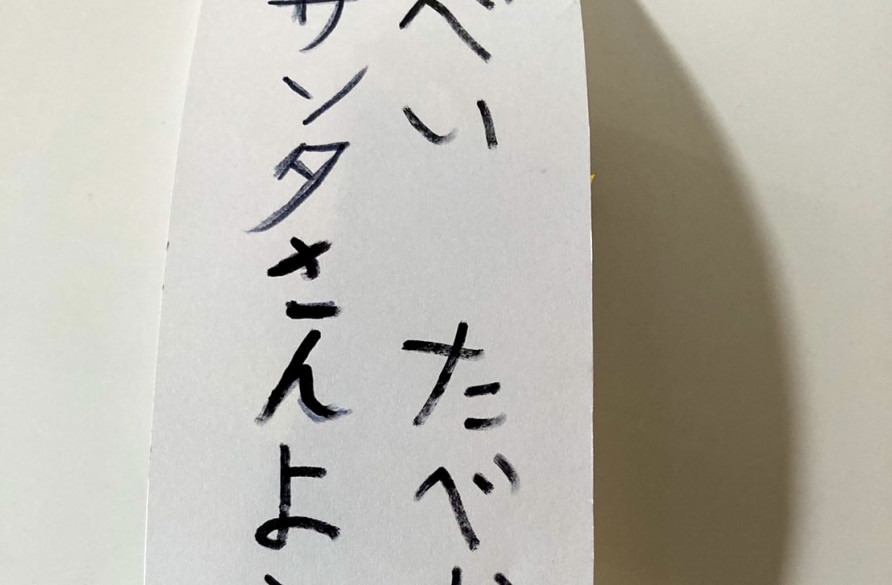 べい たべ
サンタさんよ